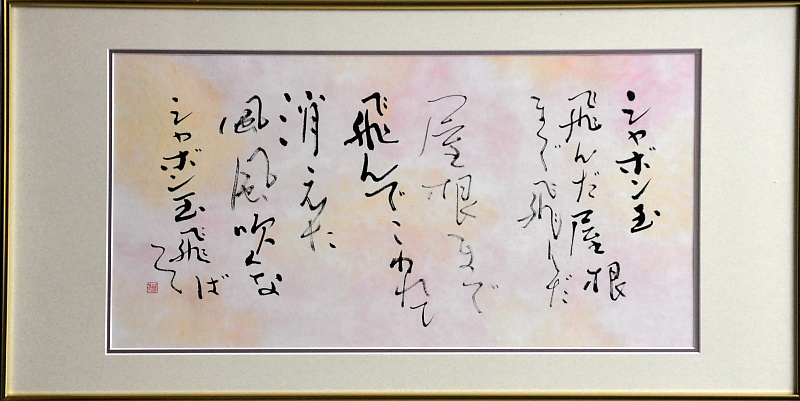 シャボン玉
飛んだ屋根
まで飛んだ
屋根まで
飛んでこわれて
消えた
風風吹くな
シャボン玉飛ば
そう